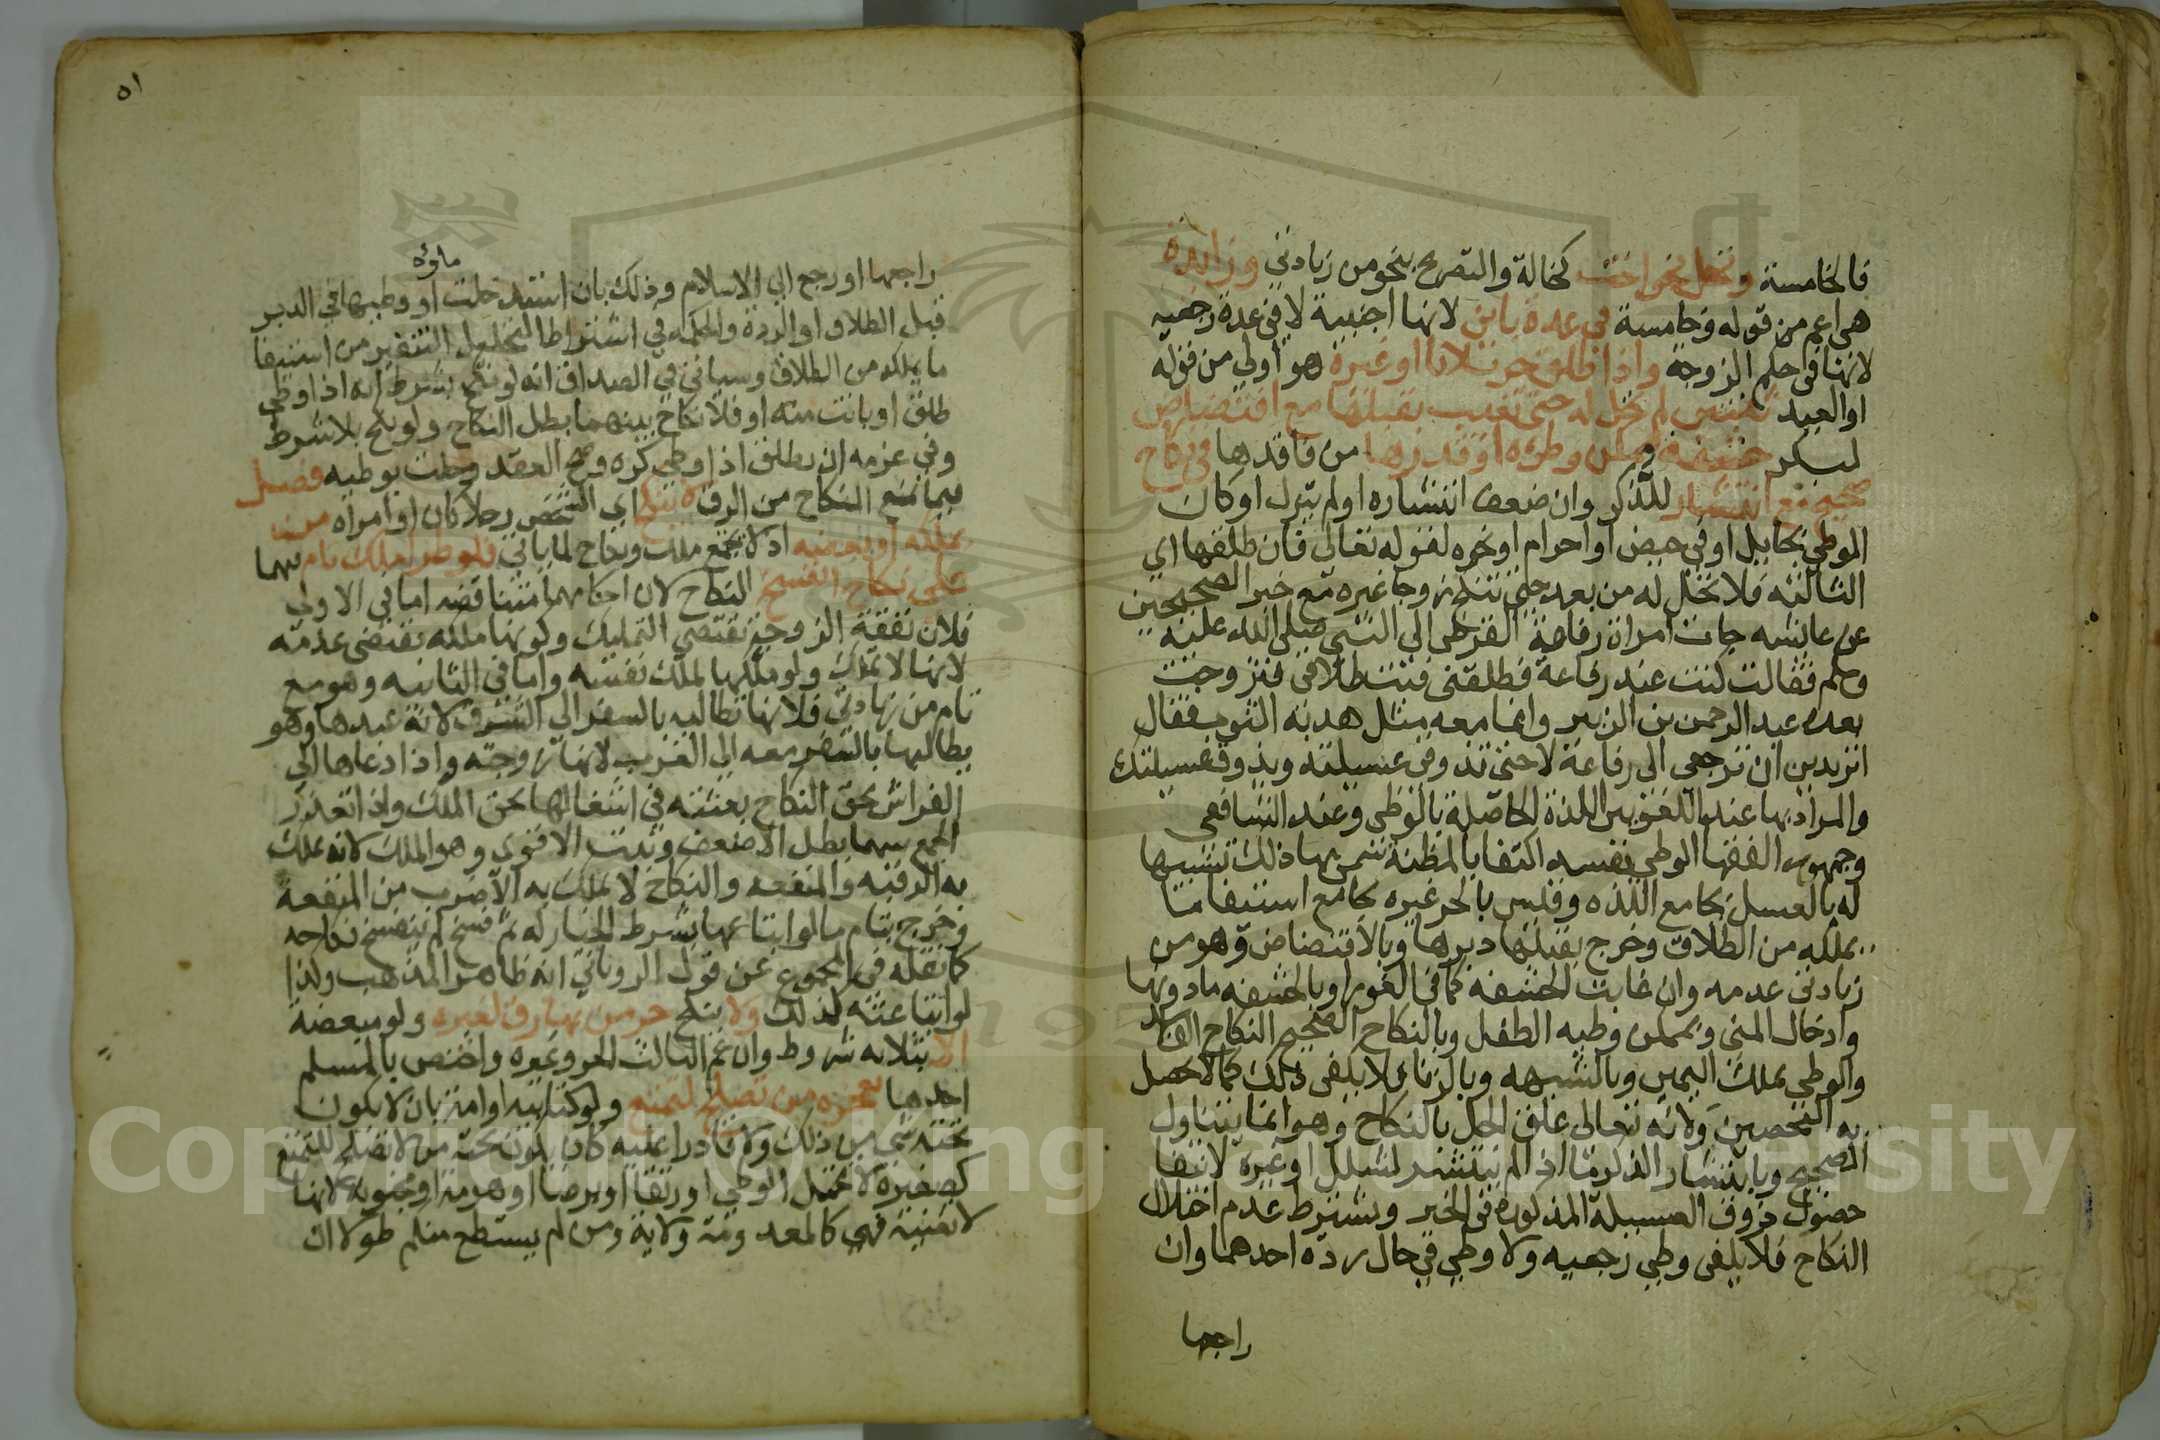 فالخامسة وتحل نحو اخت كخالة والتصريح بنحو من زيادتي وزايدة
هي اعم من قوله وخامسة في عدة باين لانها اجنبية لا في عدة رجعيه
لانها في حكم الزوجة واذا طلق حر ثلاثا او غيره هو اولى من قوله
او العبد ثنتين لم تحل له حتى تغيب بقبلها مع افتضاض
لبكر حشفة ممكن وطؤه او قدرها من فاقدها في نكاح
صحيح مع انتشار للذكر وان ضعف انتشاره او لم ينزل او كان
الوطي بحايل او في حيض او احرام او نحوه لقوله تعالى فان طلقها اي
الثالثه فلا تحل له من بعد حتى تنكح زوجا غيره مع خبر الصحيحين
عن عائشه جات امراة رفاعة القرظي الى النبي صلى الله عليه
وسلم فقالت كنت عند رفاعة فطلقني فبت طلاقي فتزوجت
بعده عبد الرحمن بن الزبير وانما معه مثل هدبة الثوب فقال
اتريدين ان ترجعي الى رفاعة لا حتى تذوقي عسيلته ويذوق عسيلتك
والمراد بها عند اللغويين اللذة الحاصلة بالوطي وعند الشافعي
وجمهور الفقها الوطي نفسه اكتفا بالمظنة سمي بها ذلك تشبيها
له بالعسل بجامع اللذه وقيس بالحر غيره بجامع استيفا ما
يملكه من الطلاق وخرج بقبلها دبرها وبالافتضاض وهو من
زيادتي عدمه وان غابت الحشفه كما في الغورا وبالحشفه ما دونها
وادخال المني وبممكن وطيه الطفل وبالنكاح الصحيح النكاح الفاسد
والوطي بملك اليمين وبالشبهه وبالزنا فلا يكفي ذلك كما لا يحصل
به التحصين ولانه تعالى علق الحل بالنكاح وهو انما يتناول
الصحيح وبانتشار الذكر ما اذا لم ينتشر لشلل او غيره لانتفا
حصول ذوق العسيلة المذكورة في الخبر ويشترط عدم اختلال
النكاح فلا يكفي وطي رجعيه ولا وطي في حال ردة احدهما وان
راجعها
٥١
ماؤه
راجعها او رجع الى الاسلام وذلك بان استدخلت او وطيها في الدبر
قبل الطلاق او الردة والحكمه في اشتراط التحليل التنفير من استيفا
ما يملكه من الطلاق وسياتي في الصداق انه لو نكح بشرط انه اذا وطي
طلق او بانت منه او فلا نكاح بينهما بطل النكاح ولو نكح بلا شرط
وفي عزمه ان يطلق اذا وطي كره وصح العقد وحلت بوطيه فصل
فيما يمنع النكاح من الرق لا ينكح اي الشخص رجلا كان او امراه من
يملكه او بعضه اذ لا يجتمع ملك ونكاح لما ياتي فلو طرا ملك تام فيهما
على نكاح انفسخ النكاح لان احكامهما متناقضه اما في الاولى
فلان نفقة الزوجة تقتضي التمليك وكونها ملكه تقتضي عدمه
لانها لا تملك ولو ملكها لملك نفسه واما في الثانيه وهو مع
تام من زيادتي فلانها تطالبه بالسفر الى الشرق لانه عبدها وهو
يطالبها بالسفر معه الى الغرب لانها زوجته واذا دعاها الى
الفراش بحق النكاح بعثته في اشغالها بحق الملك واذا تعذر
الجمع بينهما بطل الاضعف وثبت الاقوى وهو الملك لانه يملك
به الرقبه والمنفعه والنكاح لا يملك به الا ضرب من المنفعة
وخرج بتام ما لو ابتاعها بشرط الخيار له ثم فسخ لم ينفسخ نكاحه
كما نقله في المجموع عن قول الروياني انه ظاهر المذهب وكذا
لو ابتاعته كذلك ولا ينكح حر من بها رق لغيره ولو مبعضة
الا بثلاثه شروط وان عم الثالث الحر وغيره واختص بالمسلم
احدها بعجزه عمن تصلح لتمتع ولو كتابيه او امة بان لا يكون
تحته شي من ذلك ولا قادرا عليه كان يكون تحته من لا تصلح للتمتع
كصغيرة لا تحتمل الوطي او رتقا او برصا او هرمة او مجنونة لانها
لا تغنيه فهي كالمعدومة ولاية ومن لم يستطع منكم طولا ان
Copyright © King Saud University
1957